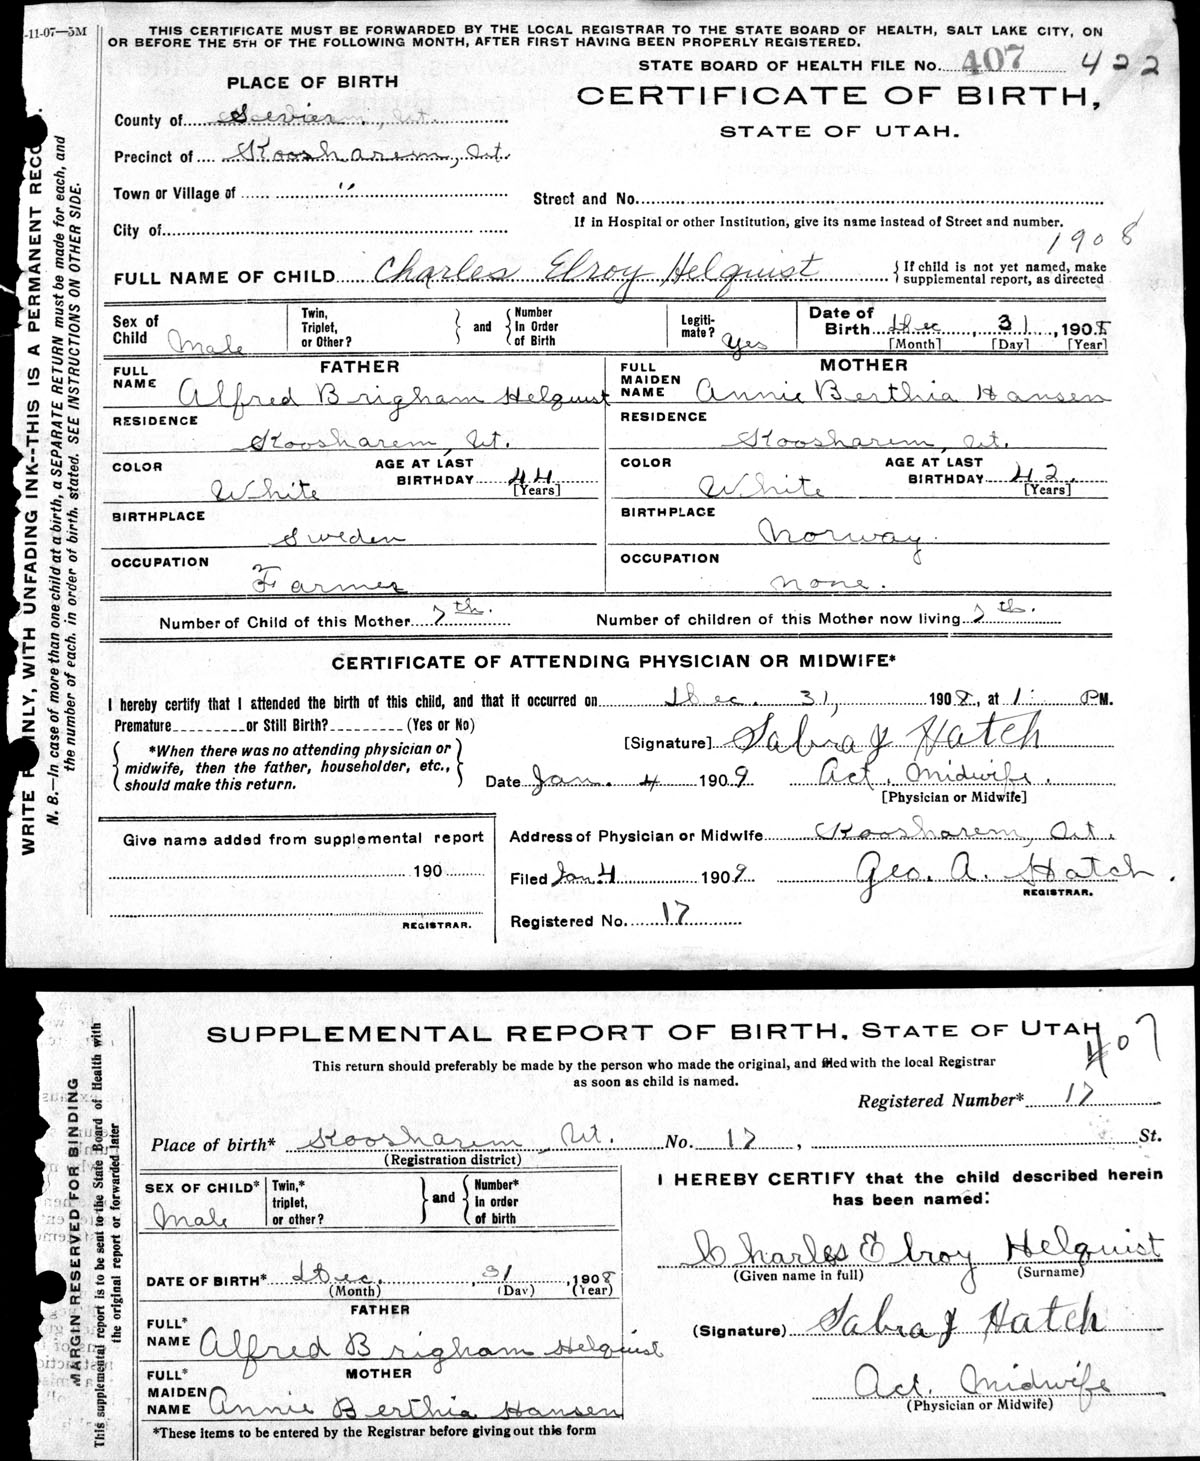 -11-07—5M
THIS CERTIFICATE MUST BE FORWARDED BY THE LOCAL REGISTRAR TO THE STATE BOARD OF HEALTH, SALT LAKE CITY, ON
OR BEFORE THE 5TH OF THE FOLLOWING MONTH, AFTER FIRST HAVING BEEN PROPERLY REGISTERED.
STATE BOARD OF HEALTH FILE No. 407 422
PLACE OF BIRTH
CERTIFICATE OF BIRTH,
STATE OF UTAH.
County of Sevier, Ut.
Precinct of Koosharem, Ut.
Town or Village of "
Street and No.
If in Hospital or other Institution, give its name instead of Street and number.
City of
1908
FULL NAME OF CHILD Charles Elroy Helquist { If child is not yet named, make
supplemental report, as directed
Sex of Child Male
Twin, Triplet, or Other? } and { Number In Order of Birth
Legiti-mate? Yes
Date of Birth Dec, 31, 1908
[Month] [Day] [Year]
FATHER
FULL NAME Alfred Brigham Helquist
RESIDENCE
Koosharem, Ut.
COLOR White
AGE AT LAST BIRTHDAY 44 [Years]
BIRTHPLACE
Sweden
OCCUPATION
Farmer
MOTHER
FULL MAIDEN NAME Annie Berthia Hansen
RESIDENCE
Koosharem, Ut.
COLOR White
AGE AT LAST BIRTHDAY 42. [Years]
BIRTHPLACE
Norway.
OCCUPATION
none.
Number of Child of this Mother 7th.
Number of children of this Mother now living 7th.
CERTIFICATE OF ATTENDING PHYSICIAN OR MIDWIFE*
I hereby certify that I attended the birth of this child, and that it occurred on Dec. 31, 1908, at 1: PM.
Premature or Still Birth? (Yes or No)
{ *When there was no attending physician or
midwife, then the father, householder, etc.,
should make this return. }
[Signature] Sabra J Hatch
Date Jan. 4 1909 Act. Midwife.
[Physician or Midwife]
Give name added from supplemental report
190
REGISTRAR.
Address of Physician or Midwife Koosharem, Ut.
Filed Jan 4 1909 Geo. A. Hatch.
REGISTRAR.
Registered No. 17
WRITE PLAINLY, WITH UNFADING INK--THIS IS A PERMANENT RECO
N. B.—In case of more than one child at a birth, a SEPARATE RETURN must be made for each, and
the number of each. in order of birth. stated. SEE INSTRUCTIONS ON OTHER SIDE.
SUPPLEMENTAL REPORT OF BIRTH, STATE OF UTAH
407
This return should preferably be made by the person who made the original, and filed with the local Registrar
as soon as child is named.
Registered Number* 17
Place of birth* Koosharem, Ut. No. 17, St.
(Registration district)
SEX OF CHILD* Male
Twin,* triplet, or other? } and { Number* in order of birth
DATE OF BIRTH* Dec. , 31 , 1908
(Month) (Day) (Year)
FATHER
FULL* NAME Alfred Brigham Helquist
MOTHER
FULL* MAIDEN NAME Annie Berthia Hansen
*These items to be entered by the Registrar before giving out this form
I HEREBY CERTIFY that the child described herein
has been named:
Charles Elroy Helquist
(Given name in full) (Surname)
(Signature) Sabra J Hatch
Act. Midwife
(Physician or Midwife)
MARGIN RESERVED FOR BINDING
This supplemental report is to be sent to the State Board of Health with
the original report or forwarded later